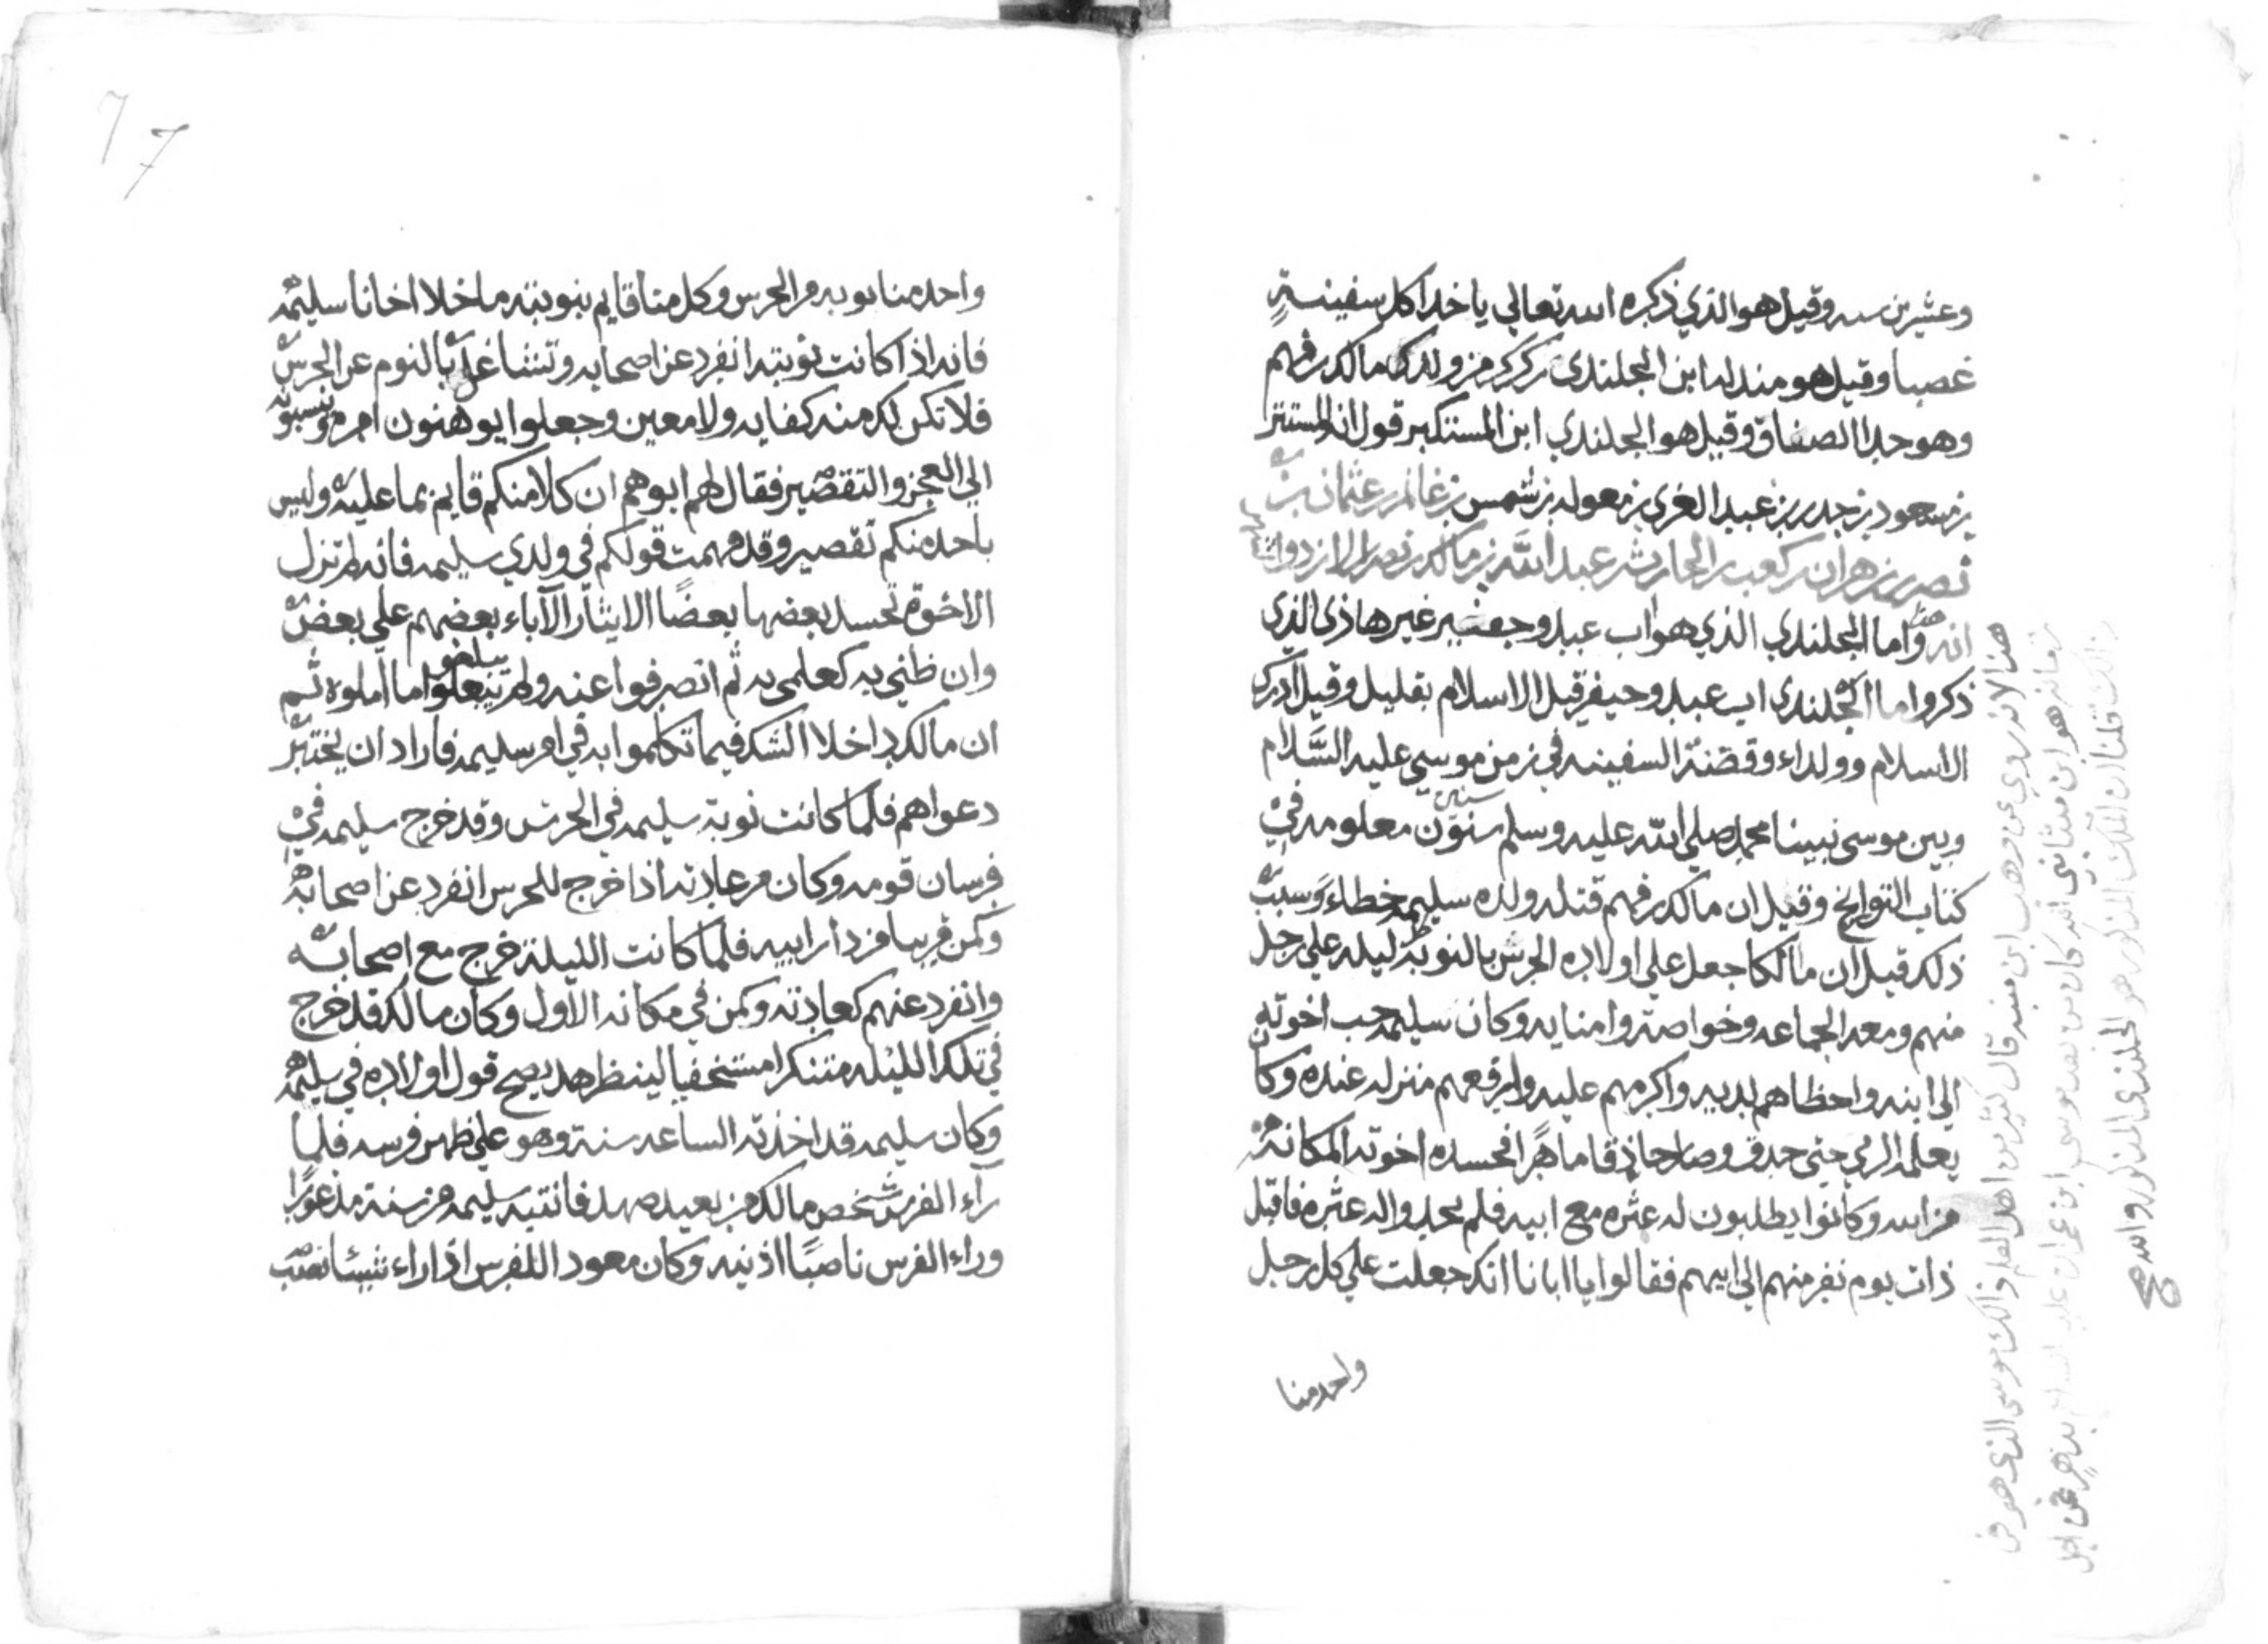 وعشرين سنه وقيل هو الذي ذكره الله تعالى ياخذ كل سفينةٍ
غصبا وقيل هو مندله ابن الجلندى بن كركر من ولد مالك بن فهم
وهو جد الصفاق وقيل هو الجلندي ابن المستكبر قول انه المستتر
بن مسعود بن جدر بن عبد العزي بن معوله بن شمس بن غانم بن عثمان بن
نصر بن زهران بن كعب بن الحارث بن عبد الله بن مالك بن نصر الازد وان
انه واما الجلندي الذي هو اب عبد وجعفير غير هاذي الذي
ذكروا اما الجلندى اب عبد وحيفر قبل الاسلام بقليل وقيل ادرك
الاسلام وولداء وقصّة السفينه في زمن موسي عليه السَّلام
وبين موسى نبينا محمد صلي الله عليه وسلم سنون سنين معلومه في
كتاب التواريخ وقيل ان مالك بن فهم قتله ولده سليمه خطاء وسبب
ذلك قيل ان مالكا جعل علي اولاده الحرس بالنوبة كل ليله علي رجل
منهم ومعه الجماعه وخواصته وامنايه وكان سليمه احب اخوته
الي ابيه واحظاهم لديه واكرمهم عليه وارفعهم منزله عنده وكان
يعلمه الرمي حتي حدق وصار حاذقا ماهرًا فحسده اخوته لمكانته
من ابيه وكانوا يطلبون له عثره مع ابيه فلم يجدوا له عثره فاقبل
ذات يوم نفر منهم الي ابيهم فقالوا يا ابانا انك جعلت علي كل رجل
واحد منا
هذا لانه روي عن وهب ابن منبه قال كثير من اهل العلم ذالك موسى الذي هو في
زمانه هو ابن منشا نبي الله كان من بعد موسى ابن عمران عليه السلام
ذالك قلنا ان الملك المذكور هو الجلندى المذكور والله
واحد منا نوبه من الحرس وكل منا قايم بنوبته ما خلا اخانا سليمه
فانه اذا كانت نوبته انفرد عن اصحابه وتشاغل بالنوم عن الحرس
فلا تكن لك منه كفايه ولا معين وجعلوا يوهنون امره وينسبوه
الي العجز والتقصير فقال لهم ابوهم ان كلا منكم قايم بما عليه وليس
باحد منكم تقصير وقد فهمت قولكم في ولدي سليمه فانه لم تزل
الاخوة تحسد بعضها بعضًا الايثار الآباء بعضهم علي بعض
وان ظني به كعلمي به ثم انصرفوا عنه ولم يبلغوا ما املوه ثم
ان مالك داخلا الشك فيما تكلموا به في امر سليمه فاراد ان يختبر
دعواهم فلما كانت نوبة سليمه في الحرس وقد خرج سليمه في
فرسان قومه وكان من عادته اذا خرج للحرس انفرد عن اصحابه
وكمن قريبا من دار ابيه فلما كانت الليلة خرج مع اصحابه
وانفرد عنهم كعادته وكمن في مكانه الاول وكان مالك قد خرج
في تلك الليله متنكرا مستخفيا لينظر هل يصح قول اولاده في سليمه
وكان سليمه قد اخذته الساعه سنة وهو علي ظهر فرسه فلما
رآء الفرس شخص مالك من بعيد صهل فانتبه سليمه من سنة مذعورًا
وراء الفرس ناصبًا اذنيه وكان معود اللفرس اذا راء شيئا نصب